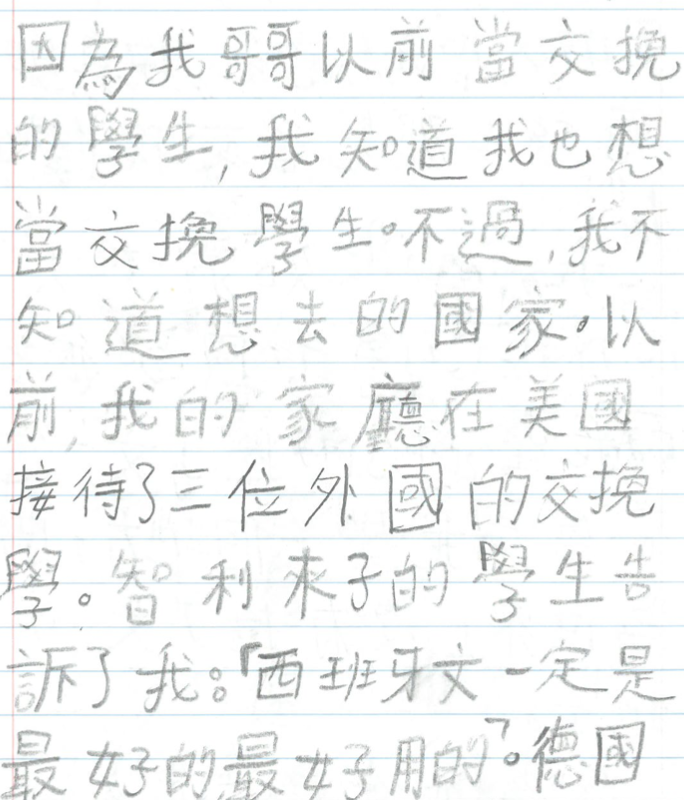 因為我哥哥以前當交挽
的學生,我知道我也想
當交挽學生。不過,我不
知道想去的國家。以
前,我的家廳在美國
接待了三位外國的交挽
學。智利來子的學生告
訴了我:「西班牙文一定是
最好的,最好用的」。德國